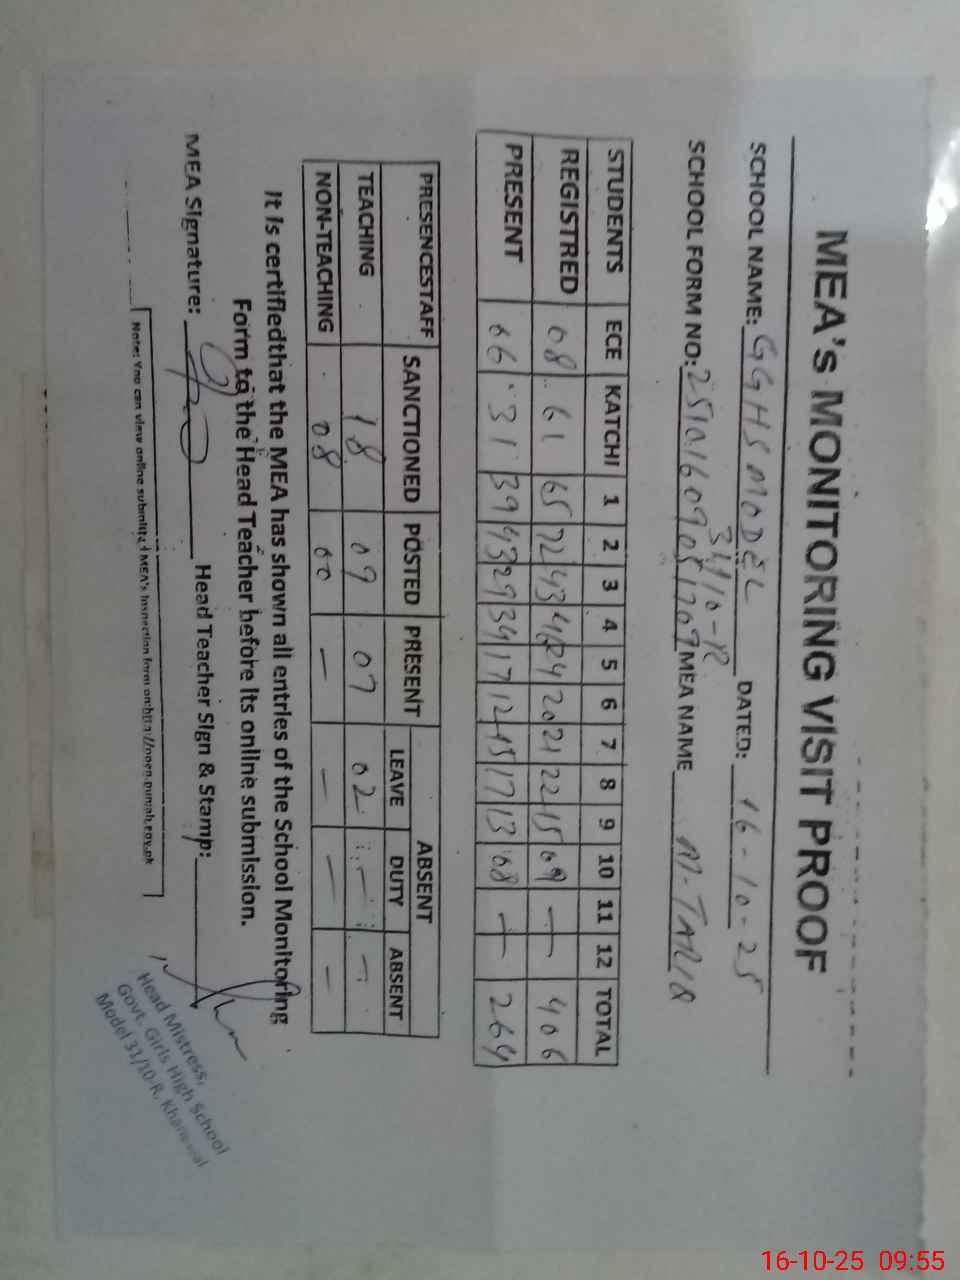 MEA's MONITORING VISIT PROOF
SCHOOL NAME: GGHS MODEL 31/10-R DATED: 16-10-25
SCHOOL FORM NO: MEA NAME M-TARIQ
STUDENTS ECE KATCHI 1 2 3 4 5 6 7 8 9 10 11 12 TOTAL
REGISTRED 08 61 65 72 43 46 24 20 21 22 15 09 — — 406
PRESENT 06 31 39 43 29 34 17 12 15 17 13 08 — — 264
PRESENCESTAFF SANCTIONED POSTED PRESENT ABSENT
LEAVE DUTY ABSENT
TEACHING 18 09 07 02 — —
NON-TEACHING 08 00 — — — —
It is certifiedthat the MEA has shown all entries of the School Monitoring
Form to the Head Teacher before its online submission.
MEA Signature: Head Teacher Sign & Stamp:
Head Mistress,
Govt. Girls High School
Model 31/10-R, Khanewal
Note: You can view online submitted MEA's Inspection form on:http://open.punjab.gov.pk
16-10-25 09:55